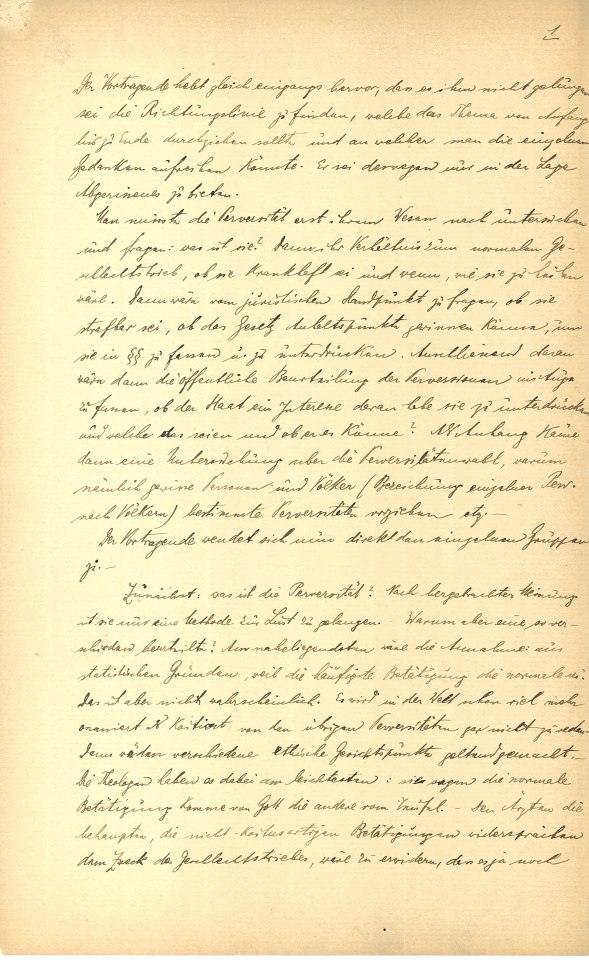 1
Der Vortragende hebt gleich eingangs hervor, dass es ihm nicht gelungen
sei die Richtungslinie zu finden, welche das Thema von Anfang
bis zu Ende durchziehen sollte und an welcher man die einzelnen
Gedanken aufreihen könnte. Er sei deswegen nur in der Lage
Abgerissenes zu bieten.
Man müsste die Perversität erst ihrem Wesen nach untersuchen
und fragen: was ist sie? Dann ihr Verhältnis zum normalen Ge-
schlechtstrieb, ob sie krankhaft sei und wenn, wie sie zu heilen
wäre. Dann wäre vom juristischen Standpunkt zu fragen, ob sie
strafbar sei, ob das Gesetz Anhaltspunkte gewinnen könne, um
sie in §§ zu fassen u. zu unterdrücken. Anschliessend daran
wäre dann die öffentliche Beurteilung der Perversionen ins Auge
zu fassen, ob der Staat ein Interesse daran habe sie zu unterdrücken
und welche das seien und ob er es könne? Als Anhang käme
dann eine Untersuchung über die Perversitätenwahl, warum
nämlich gewisse Personen und Völker (Bezeichnung einzelner Perv.
nach Völkern) bestimmte Perversitäten vorziehen etz. —
Der Vortragende wendet sich nun direkt den einzelnen Gruppen
zu. —
Zunächst: was ist die Perversität? Nach hergebrachter Meinung
ist sie nur eine Methode zur Lust zu gelangen. Warum aber eine so ver-
schieden beurteilte? Am naheliegendsten wäre die Annahme: aus
statistischen Gründen, weil die häufigste Betätigung die normale ist.
Das ist aber nicht wahrscheinlich. Es wird in der Welt schon viel mehr
onaniert als koitiert von den übrigen Perversitäten gar nicht zu reden.
Dann würden verschiedene ethische Gesichtspunkte geltend gemacht. —
Die Theologen haben es dabei am leichtesten: sie sagen die normale
Betätigung komme von Gott die andere vom Teufel. — Den Ärzten die
behaupten, die nicht-koitusartigen Betätigungen widersprächen
dem Zweck des Geschlechtstriebes, wäre zu erwidern, dass es ja noch